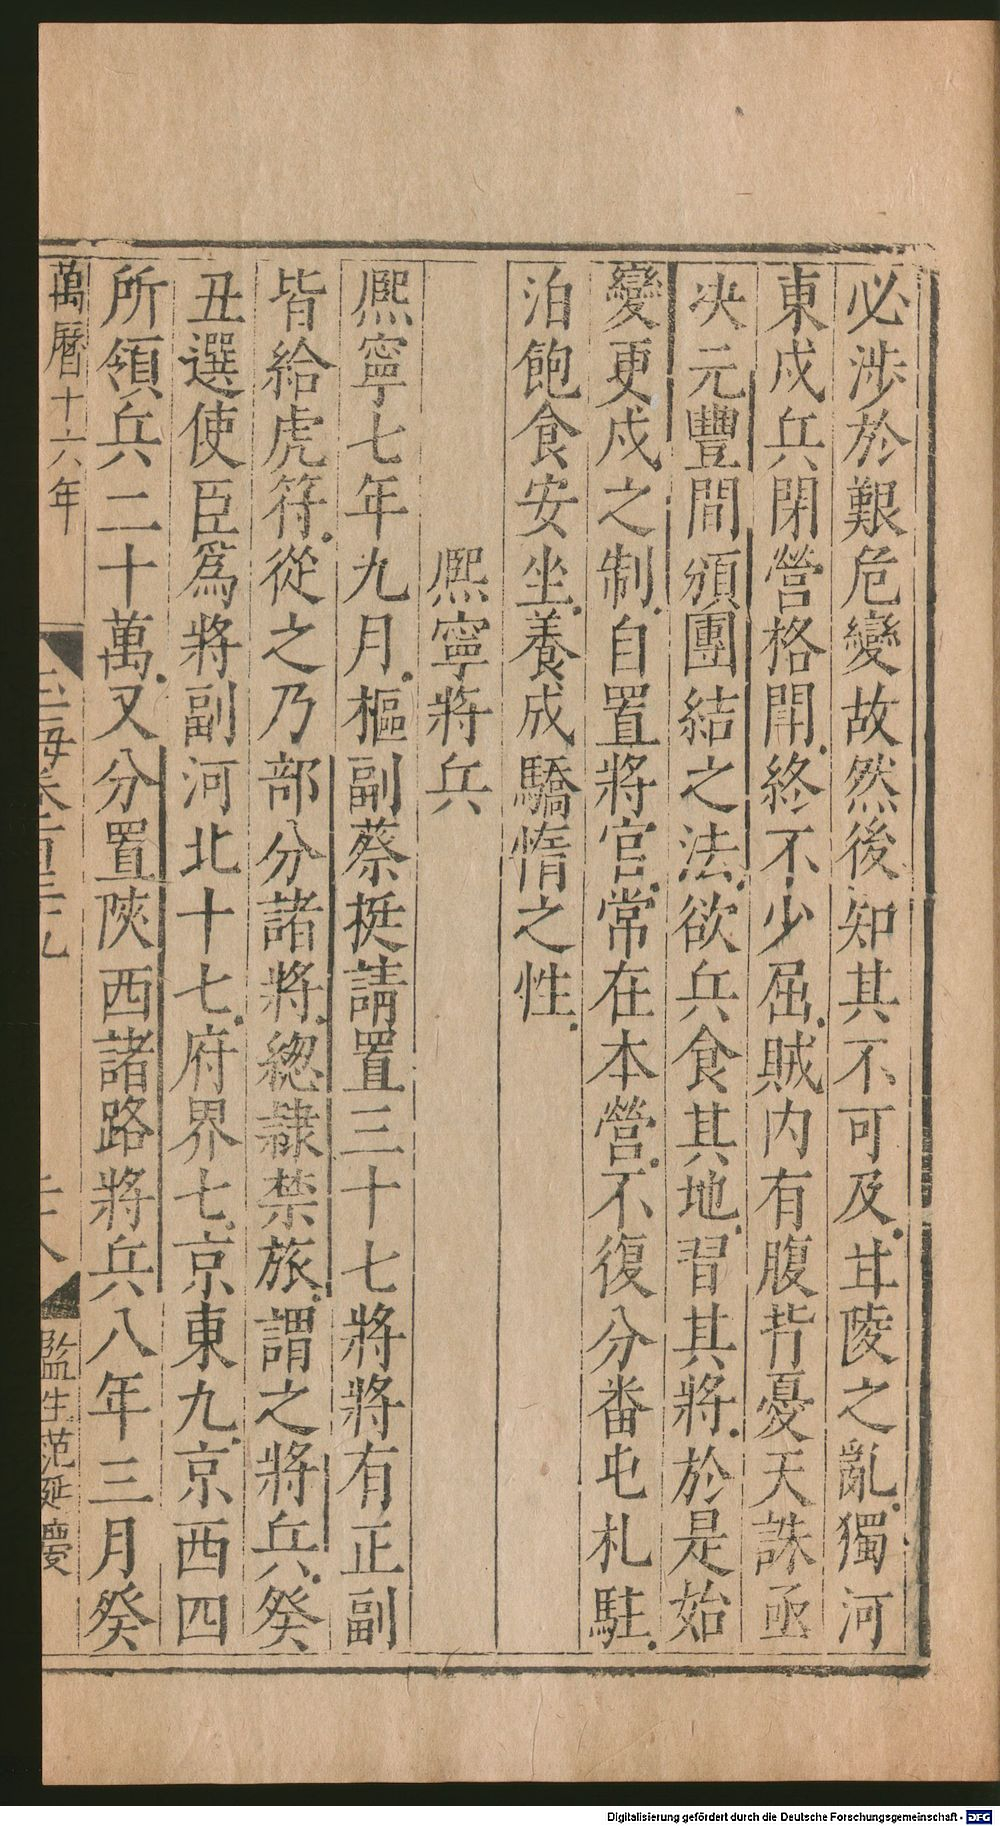 必涉於艱危變故然後知其不可及甘陵之亂獨河
東戍兵閉營格鬬終不少屈賊内有腹背憂天誅亟
决元豐間頒團結之法欲兵食其地習其將於是始
變更戍之制自置將官常在本營不復分畨屯札駐
泊飽食安坐養成驕惰之性
熈寧將兵
熈寧七年九月樞副蔡挺請置三十七將將有正副
皆給虎符從之乃部分諸將緫隷禁旅謂之將兵癸
丑選使臣爲將副河北十七府界七京東九京西四
所領兵二十萬又分置陜西諸路將兵八年三月癸
萬曆十六年
玉海卷一百三十九
監生范延慶
Digitalisierung gefördert durch die Deutsche Forschungsgemeinschaft - DFG